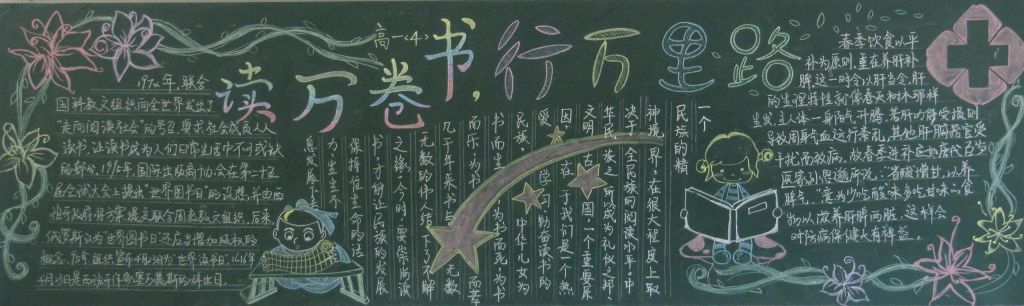 高一<4>
读万卷书,行万里路
1972年,联合
国科教文组织向全世界发出了
"走向阅读社会"的号召,要求社会成员人人
读书,让读书成为人们日常生活中不可或缺
的部分,1995年,国际出版商协会在第二十五
届全球大会上提出"世界图书日"的设想,并由西
班牙政府将方案提交联合国教科文组织,后来
俄罗斯认为"世界图书日"还应当增加版权的
概念,95年,组织宣布4月23日为"世界读书日",1616年
4月23日是西班牙作家塞万提斯的辞世日。
一个
民族的精
神境界,在很大程度上取
决于全民族的阅读水平,中
华民族之所以成为礼仪之邦、
文明古国,一个重要原
因在于我们是一个热
爱学习,勤奋读书的
民族,中华儿女为
书而生,为书而死,为书
而乐,为书而
几千年来,书与无数
无数的仆人结下了不解
之缘,今明,要崇尚读
书,才能让民族的发展
保持恒久生命的活
力,生生不
息发展下去
春季饮食以平
补为原则,重在养肝补
脾,这一时令以肝当令,肝
的生理特性就像春天和木那样
生发,主人体一身阳气升腾,若肝功能受损则
导致周身气血运行紊乱,其他肝脾器官受
干扰而致病,故春季进补应如唐代名
医家孙思邈所说:"省酸增甘,以养
脾气",意为少吃酸味多吃甘味的食
物以滋养肝脾两脏,这样会
对防病保健大有裨益。